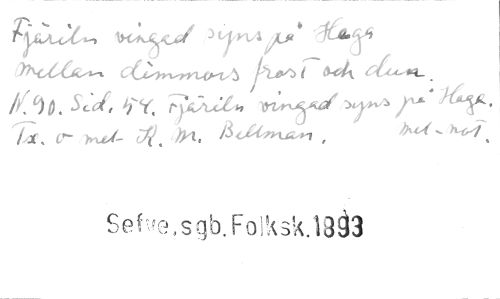 Fjäriln vingad syns på Haga
mellan dimmors frost och dun.
N. 90. Sid. 54. Fjäriln vingad syns på Haga.
Tx. o met K. M. Bellman. met-not.
Sefve, sgb. Folksk. 1893